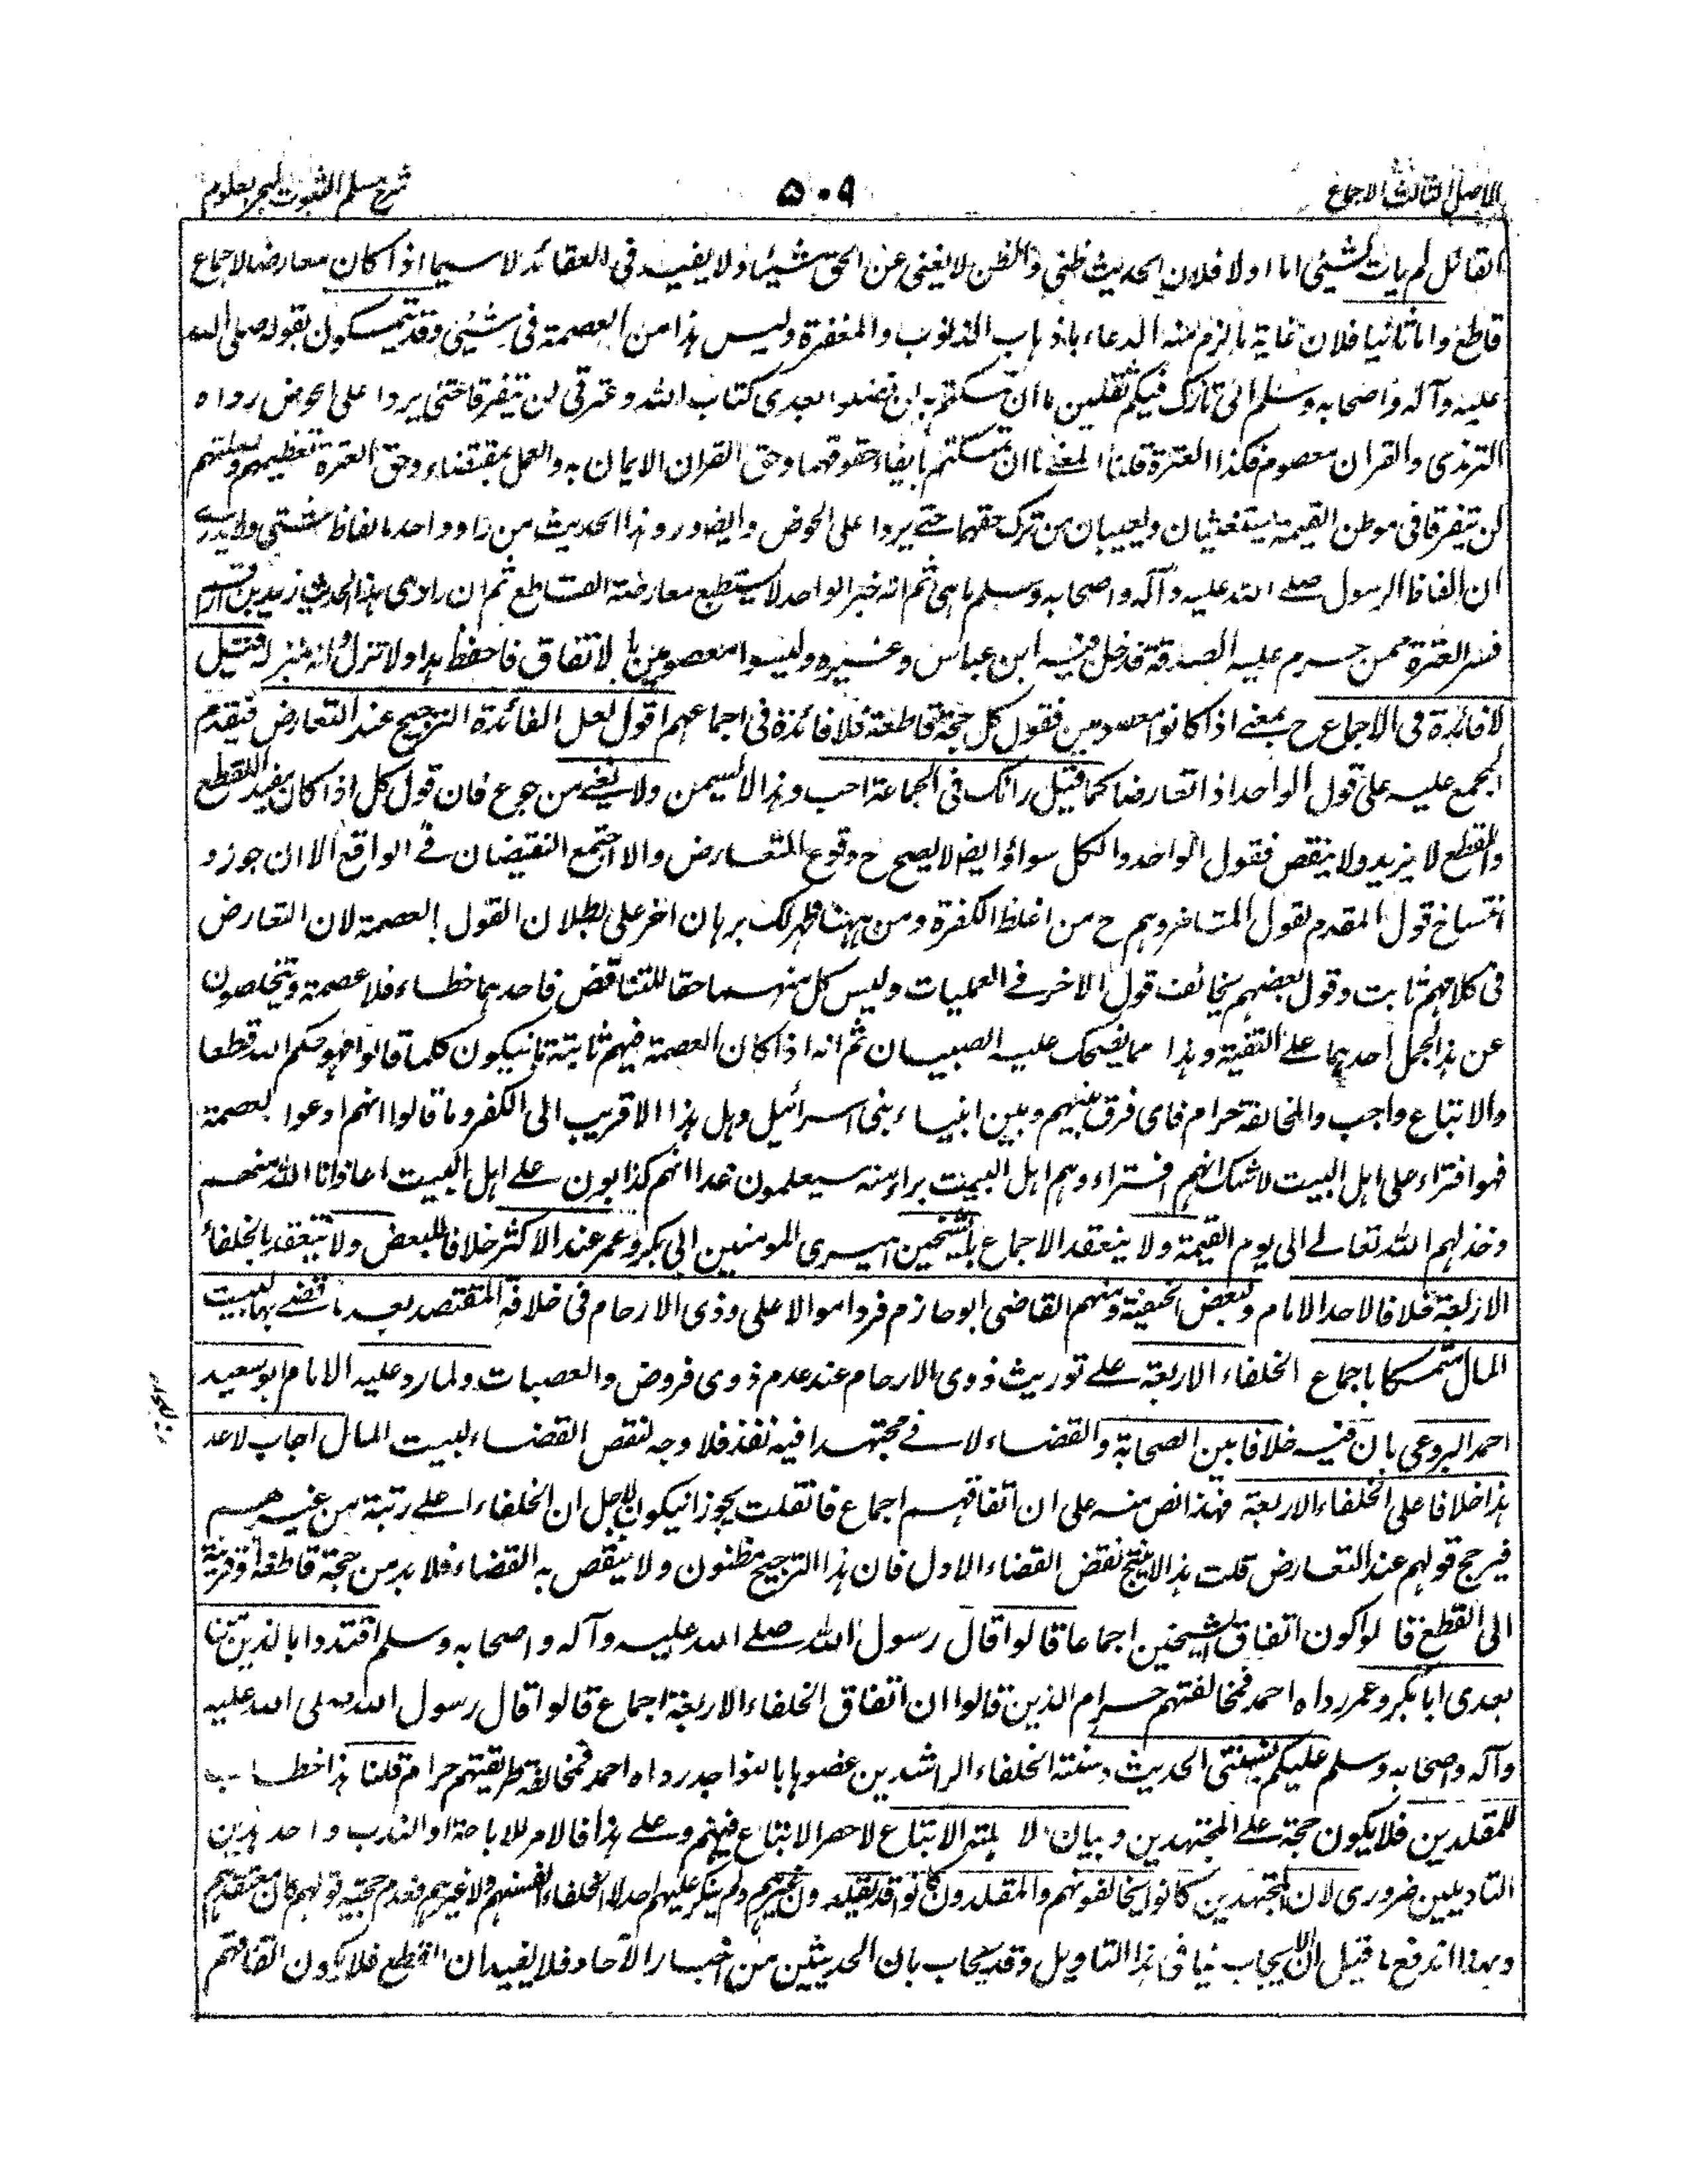 الاصل الثالث الاجماع
۵۰۹
شرح مسلم الثبوت لبحر العلوم
القائل لم يات بشئ اما اولا فلان الحديث ظني والظن لا يغني عن الحق شيئا ولا يفيد في العقائد لا سيما اذا كان معارضا لاجماع
قاطع واما ثانيا فلان غاية ما لزم منه الدعاء باذهاب الذنوب والمغفرة وليس هذا من العصمة في شئ وقد يتمسكون بقوله صلى الله
عليه وآله واصحابه وسلم اني تارك فيكم ثقلين ما ان تمسكتم به لن تضلوا بعدي كتاب الله وعترتي لن يتفرقا حتى يردا على الحوض رواه
الترمذي والقران معصوم فكذا العترة قلنا المعنى ما ان تمسكتم بايفاء حقوقهما وحق القران الايمان به والعمل بمقتضاه وحق العترة تعظيمهم وصلتهم
لن يتفرقا في موطن القيمة يستغيثان ويعيبان من ترك حقهما حتى يردا على الحوض وايضا ورد هذا الحديث من راو واحد بالفاظ شتى ولا يدرى
ان الفاظ الرسول صلى الله عليه وآله واصحابه وسلم ما هي ثم انه خبر الواحد لا يستطيع معارضة القاطع ثم ان راوي هذا الحديث زيد بن ارقم
فسر العترة بمن حرم عليه الصدقة فدخل فيه ابن عباس وغيره وليسوا معصومين بالاتفاق فاحفظ هذا ولا تزل فانه مزلة قيل
لا فائدة في الاجماع ح بمعنى اذا كانوا معصومين فقول كل حجة قاطعة فلا فائدة في اجماعهم اقول لعل الفائدة الترجيح عند التعارض فيقدم
المجمع عليه على قول الواحد اذا تعارضا كما قيل رائك في الجماعة احب وهذا لا يسمن ولا يغني من جوع فان قول كل اذا كان مفيد القطع
والقطع لا يزيد ولا ينقص فقول الواحد والكل سواء وايضا لا يصح ح وقوع التعارض والا اجتمع النقيضان في الواقع الا ان جوزوا
انتساخ قول المقدم بقول المتاخر وهم ح من اغلظ الكفرة ومن ههنا ظهر لك برهان اخر على بطلان القول بالعصمة لان التعارض
في كلامهم ثابت وقول بعضهم يخالف قول الاخر في العمليات وليس كل منهما حقا للتناقض فاحدهما خطاء فلا عصمة ويتخلصون
عن هذا بحمل احدهما على التقية وهذا مما يضحك عليه الصبيان ثم انه اذا كان العصمة فيهم ثابتة فيكون كلما قالوا فهو حكم الله قطعا
والاتباع واجب والمخالفة حرام فاي فرق بينهم وبين انبياء بني اسرائيل وهل هذا الا قريب الى الكفر وما قالوا انهم ادعوا العصمة
فهو افتراء على اهل البيت لا شك انهم افتراء وهم اهل البيت براء منه سيعلمون غدا انهم كذابون على اهل البيت اعاذنا الله منهم
وخذلهم الله تعالى الى يوم القيمة ولا ينعقد الاجماع بالشيخين اميري المومنين ابي بكر وعمر عند الاكثر خلافا للبعض ولا ينعقد بالخلفاء
الاربعة خلافا لاحد الامام ولبعض الحنفية ومنهم القاضي ابو حازم فرد اموالا على وذي الارحام في خلافة المقتصد بعد ما قضى بها لبيت
المال متمسكا باجماع الخلفاء الاربعة على توريث ذوي الارحام عند عدم ذوي فروض والعصبات ولما رد عليه الامام ابو سعيد
احمد البروعي بان فيه خلافا بين الصحابة والقضاء لاقى مجتهدا فيه نفذ فلا وجه لنقض القضاء لبيت المال اجاب لا اعد
هذا خلافا على الخلفاء الاربعة فهذا نص منه على ان اتفاقهم اجماع فان قلت يجوز ان يكون لاجل ان الخلفاء اعلى رتبة من غيرهم
فيرجح قولهم عند التعارض قلت هذا لا ينتج نقض القضاء الاول فان هذا الترجيح مظنون ولا ينقض به القضاء فلا بد من حجة قاطعة او قريبة
الى القطع قالوا كون اتفاق الشيخين اجماعا قالوا قال رسول الله صلى الله عليه وآله واصحابه وسلم اقتدوا بالذين من
بعدي ابا بكر وعمر رواه احمد فمخالفتهم حرام الذين قالوا ان اتفاق الخلفاء الاربعة اجماع قالوا قال رسول الله صلى الله عليه
وآله واصحابه وسلم عليكم بسنتي الحديث وسنة الخلفاء الراشدين عضوا بالنواجذ رواه احمد فمخالفة طريقتهم حرام قلنا هذا خطاب
للمقلدين فلا يكون حجة على المجتهدين وبيان لاهلية الاتباع لا حصر الاتباع فيهم وعلى هذا فالامر للاباحة او الندب واحد هذين
التاويلين ضروري لان المجتهدين كانوا يخالفونهم والمقلدون كانوا قد يقلدون غيرهم ولم ينكر عليهم احد لا الخلفاء انفسهم ولا غيرهم فعدم حجية قولهم كان معتقدهم
وبهذا اندفع ما قيل ان الايجاب ينافي هذا التاويل وقد يجاب بان الحديثين من اخبار الآحاد فلا يفيدان القطع فلا يكون اتفاقهم